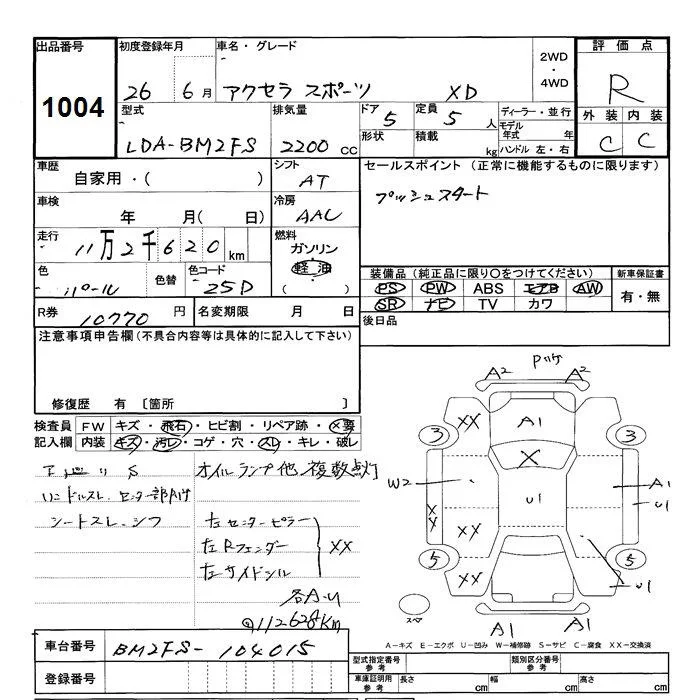 出品番号 初度登録年月 車名・グレード 2WD・4WD 評価点
1004 26 6月 アクセラ スポーツ XD R
型式 排気量 ドア 5 定員 5人 ディーラー・並行 外装 内装
LDA-BM2FS 2200cc 形状 積載 kg モデル年式 年 ハンドル 左・右 C C
車歴 シフト セールスポイント (正常に機能するものに限ります)
自家用・( ) AT プッシュスタート
車検 冷房
年 月( 日) AAC
走行 燃料
11万2千620km ガソリン・軽油
色 色替 色コード 装備品(純正品に限り○をつけてください) 新車保証書
パール 25D PS PW ABS エアB AW 有・無
SR ナビ TV カワ
R券 10770円 名変期限 月 日 後日品
注意事項申告欄(不具合内容等は具体的に記入して下さい)
修復歴 有 〔箇所 〕
検査員 FW キズ・飛石・ヒビ割・リペア跡・×要
記入欄 内装 キズ・汚レ・コゲ・穴・スレ・キレ・破レ
オイルランプ他 複数点灯
シートスレ、シワ
左センターピラー
左Rフェンダー XX
左サイドシル
各A・U
112628km
Pツケ
A2 A2
XX A1
3 X 3
W2 U1 A1
U1
XX XX
5 XX 5
U1
A1 A1
スペア
A-キズ E-エクボ U-凹み W-補修跡 S-サビ C-腐食 XX-交換済
車台番号 BM2FS-104015
登録番号
型式指定番号 参考 類別区分番号 参考
車庫証明用 参考 長さ cm 幅 cm 高さ cm